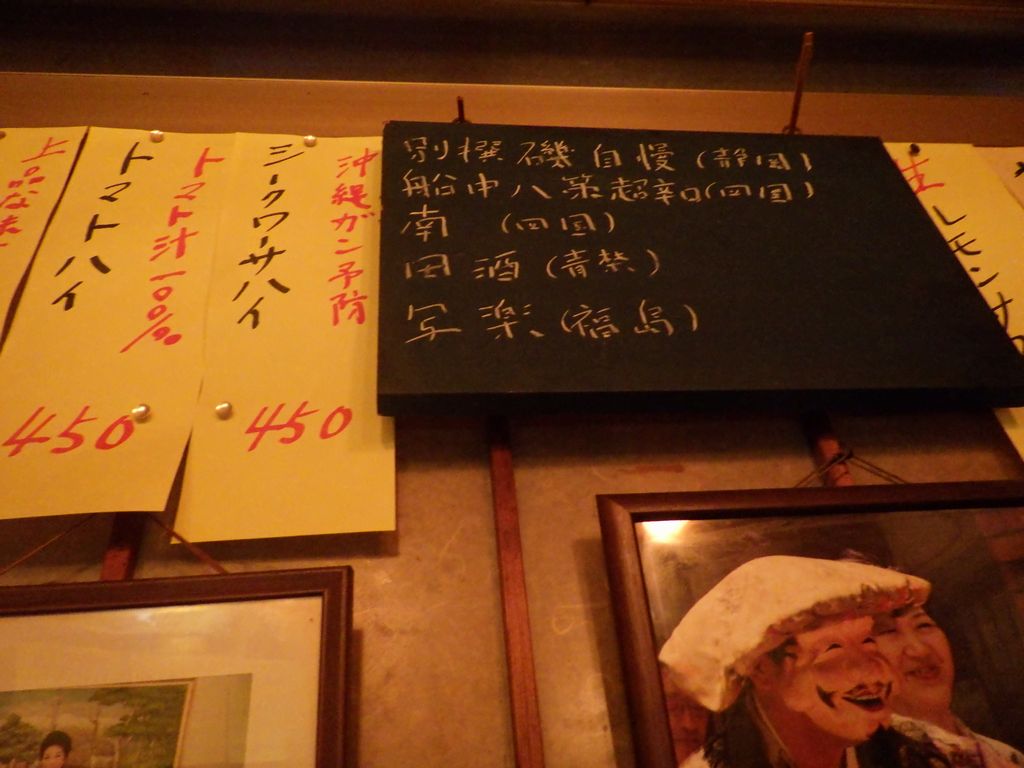 別撰 磯自慢(静岡)
船中八策超辛口(四国)
南 (四国)
田酒(青森)
写楽(福島)
沖縄ガン予防
シークワーサハイ
450
トマト汁100%
トマトハイ
450
上品な味
生レモン